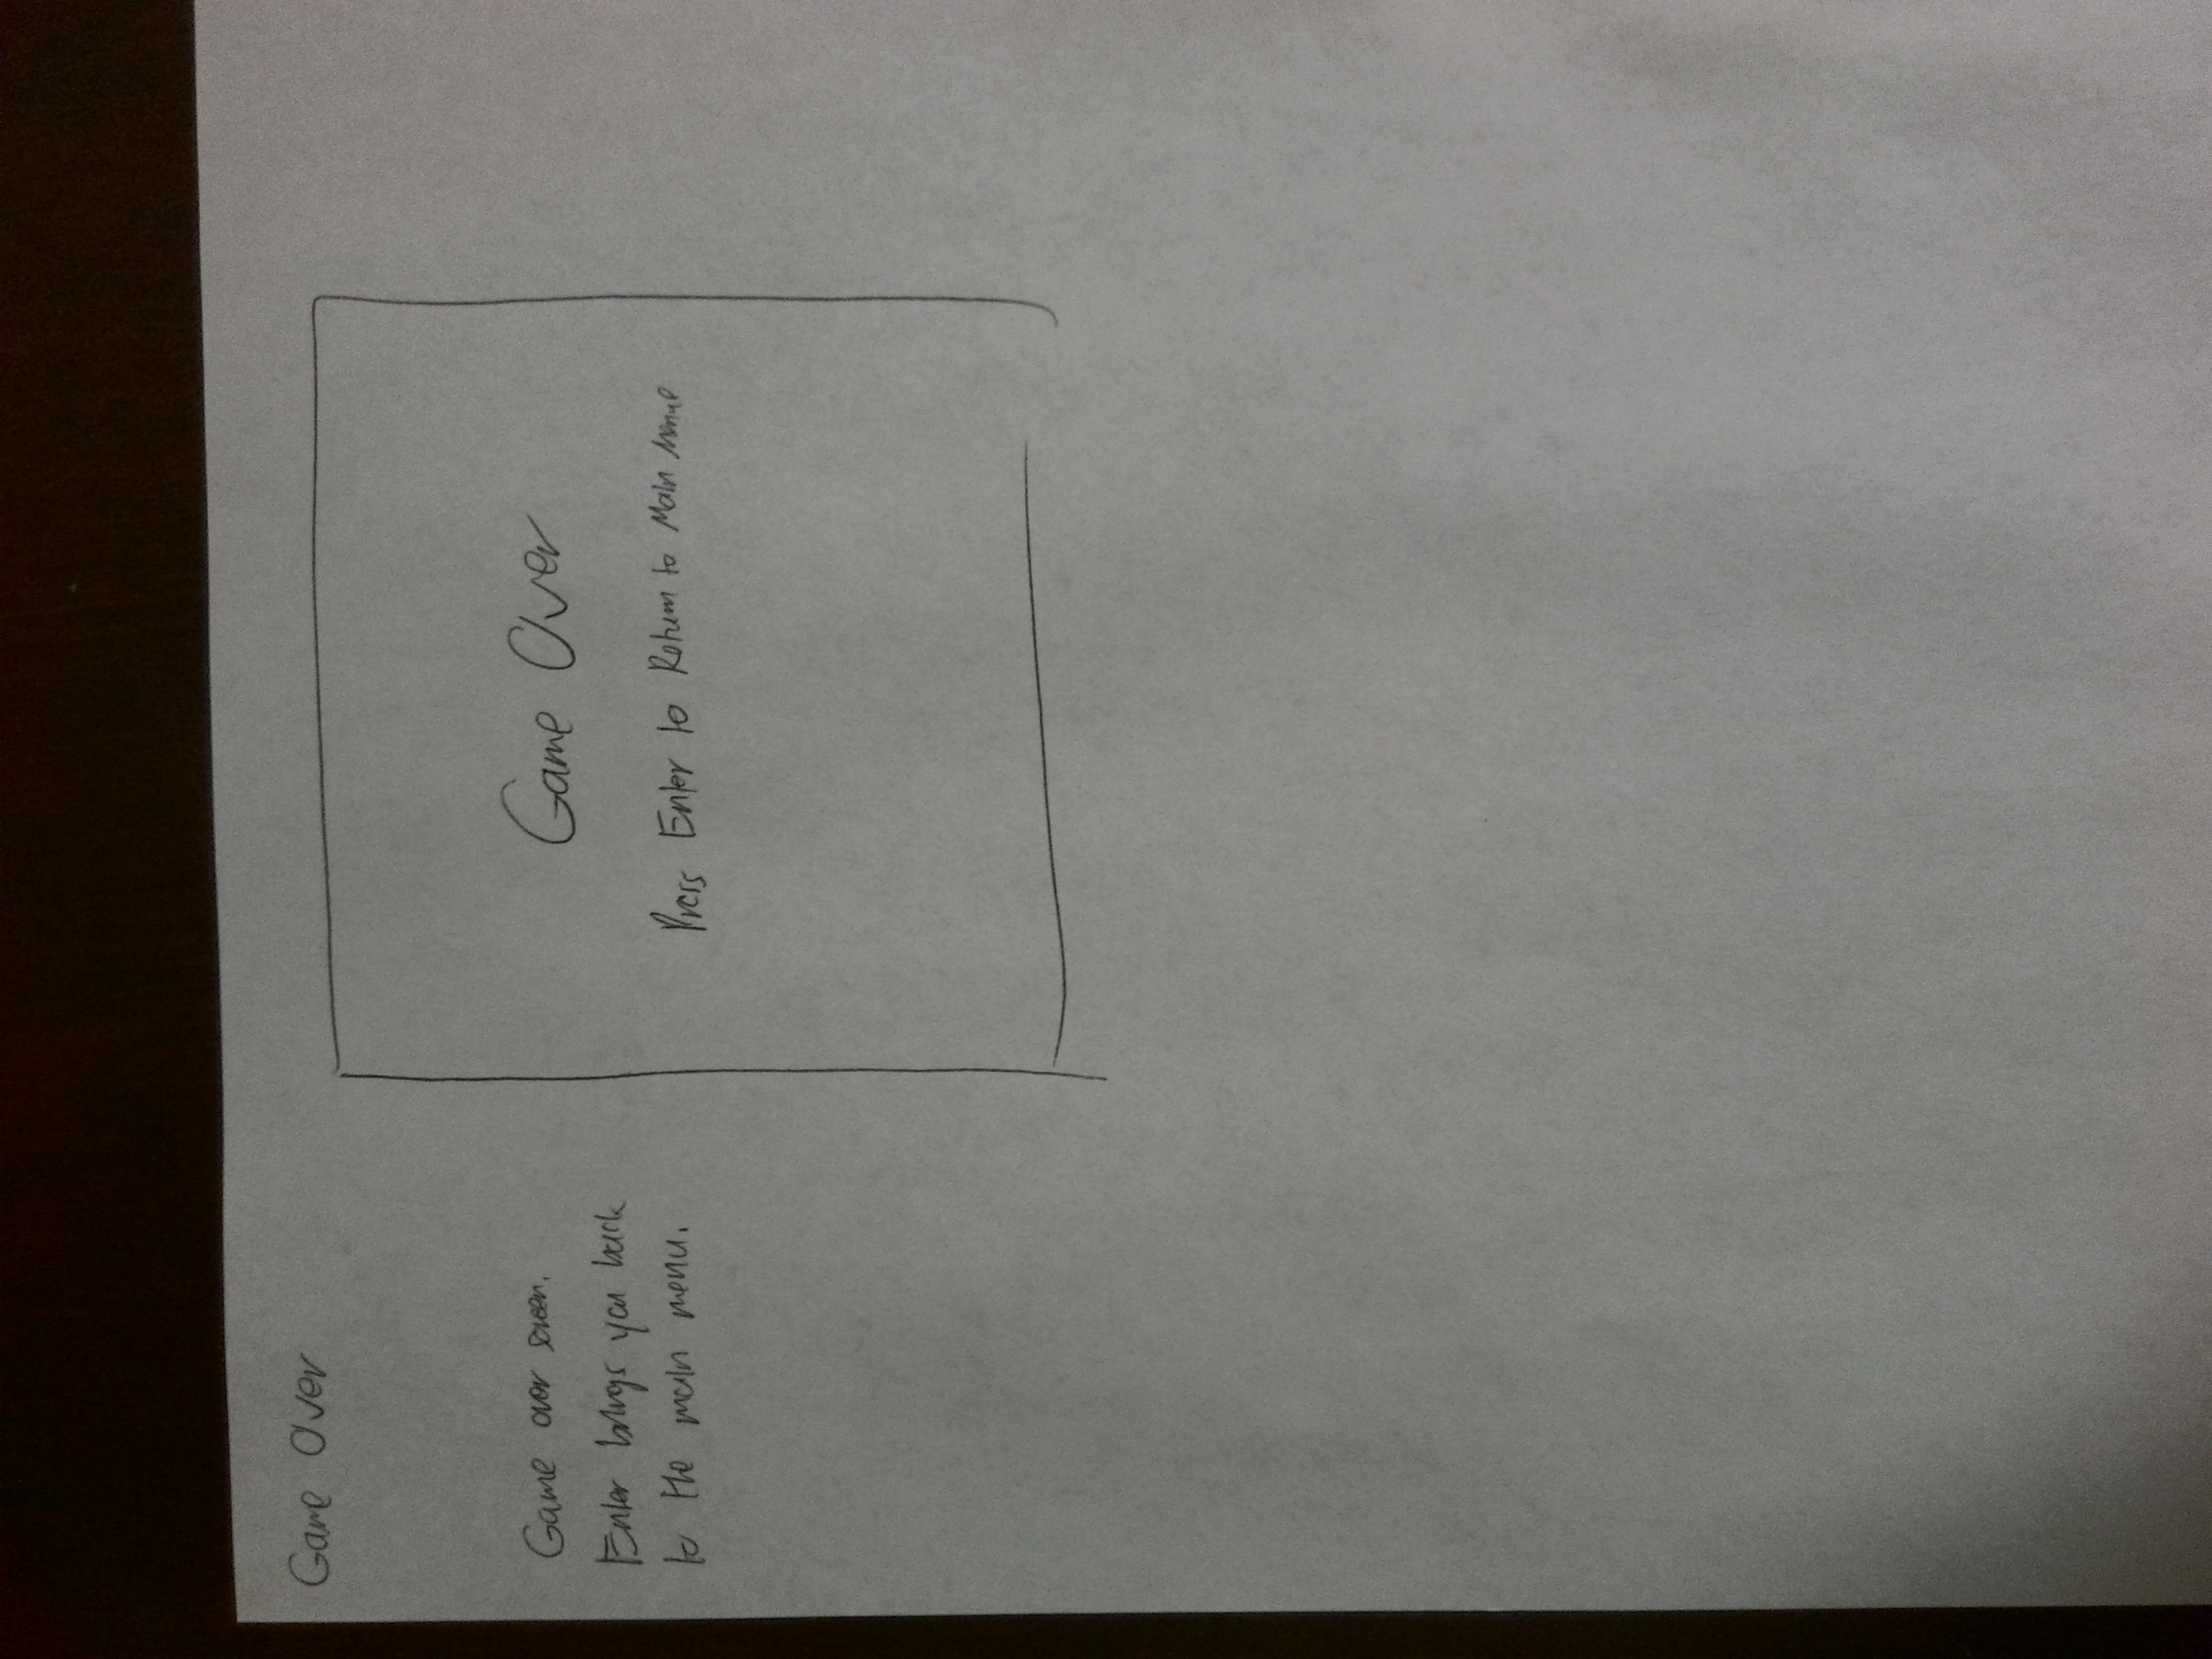 Game Over
Game over screen.
Enter brings you back
to the main menu.
Game Over
Press Enter to Return to Main Menue